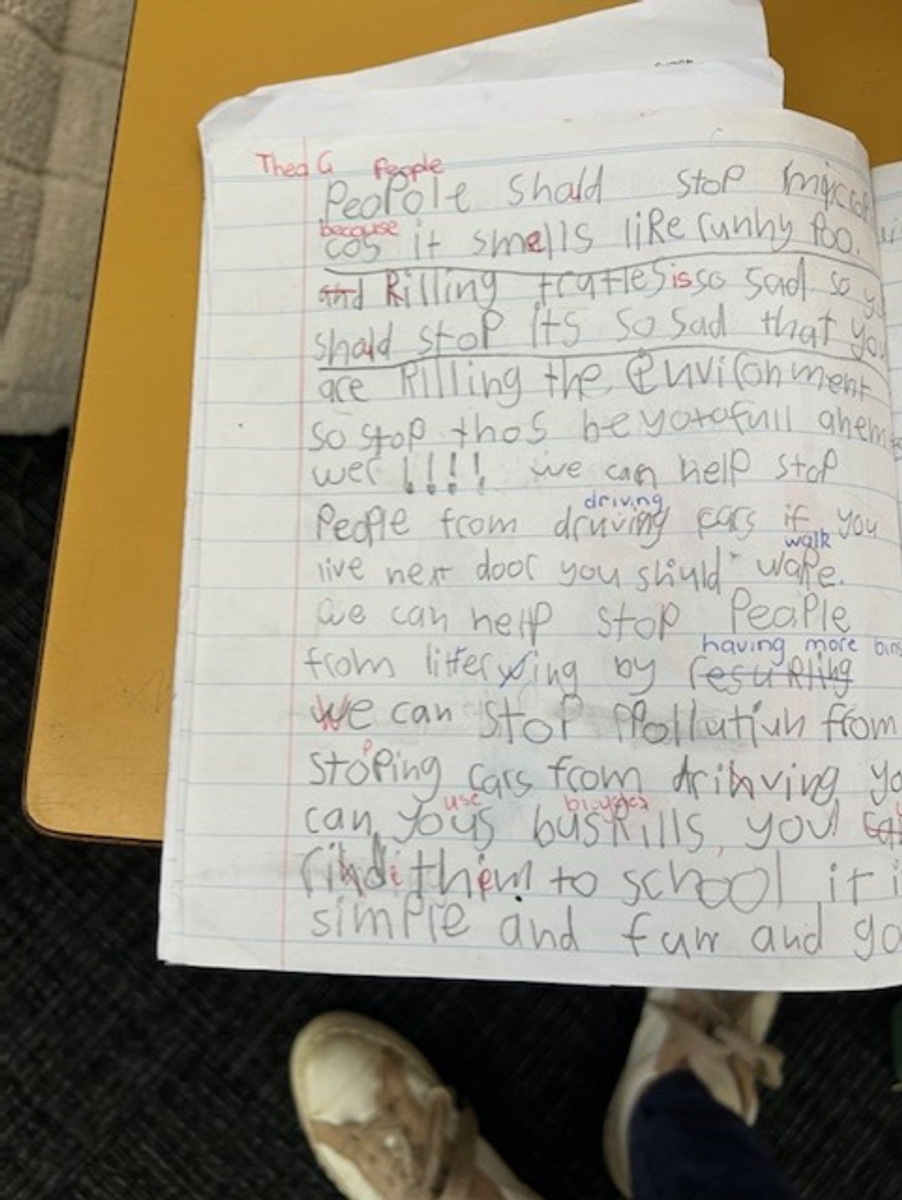 Thea G People
Peopole shald stop
because
cos it smells like runny poo.
and killing trutles is so sad so
shald stop its so sad that you
are killing the environment
so stop thos beyotofull anem
wer !!!! we can help stop
driving
People from druving cars if you
walk
live next door you shiuld wake.
we can help stop Peaple
having more bins
from litterying by resukling
We can stop Ppollutiun from
stopping cars from drihving yo
use bicycles
can yous buskills, you ca
rindi them to school it i
simple and fun and go